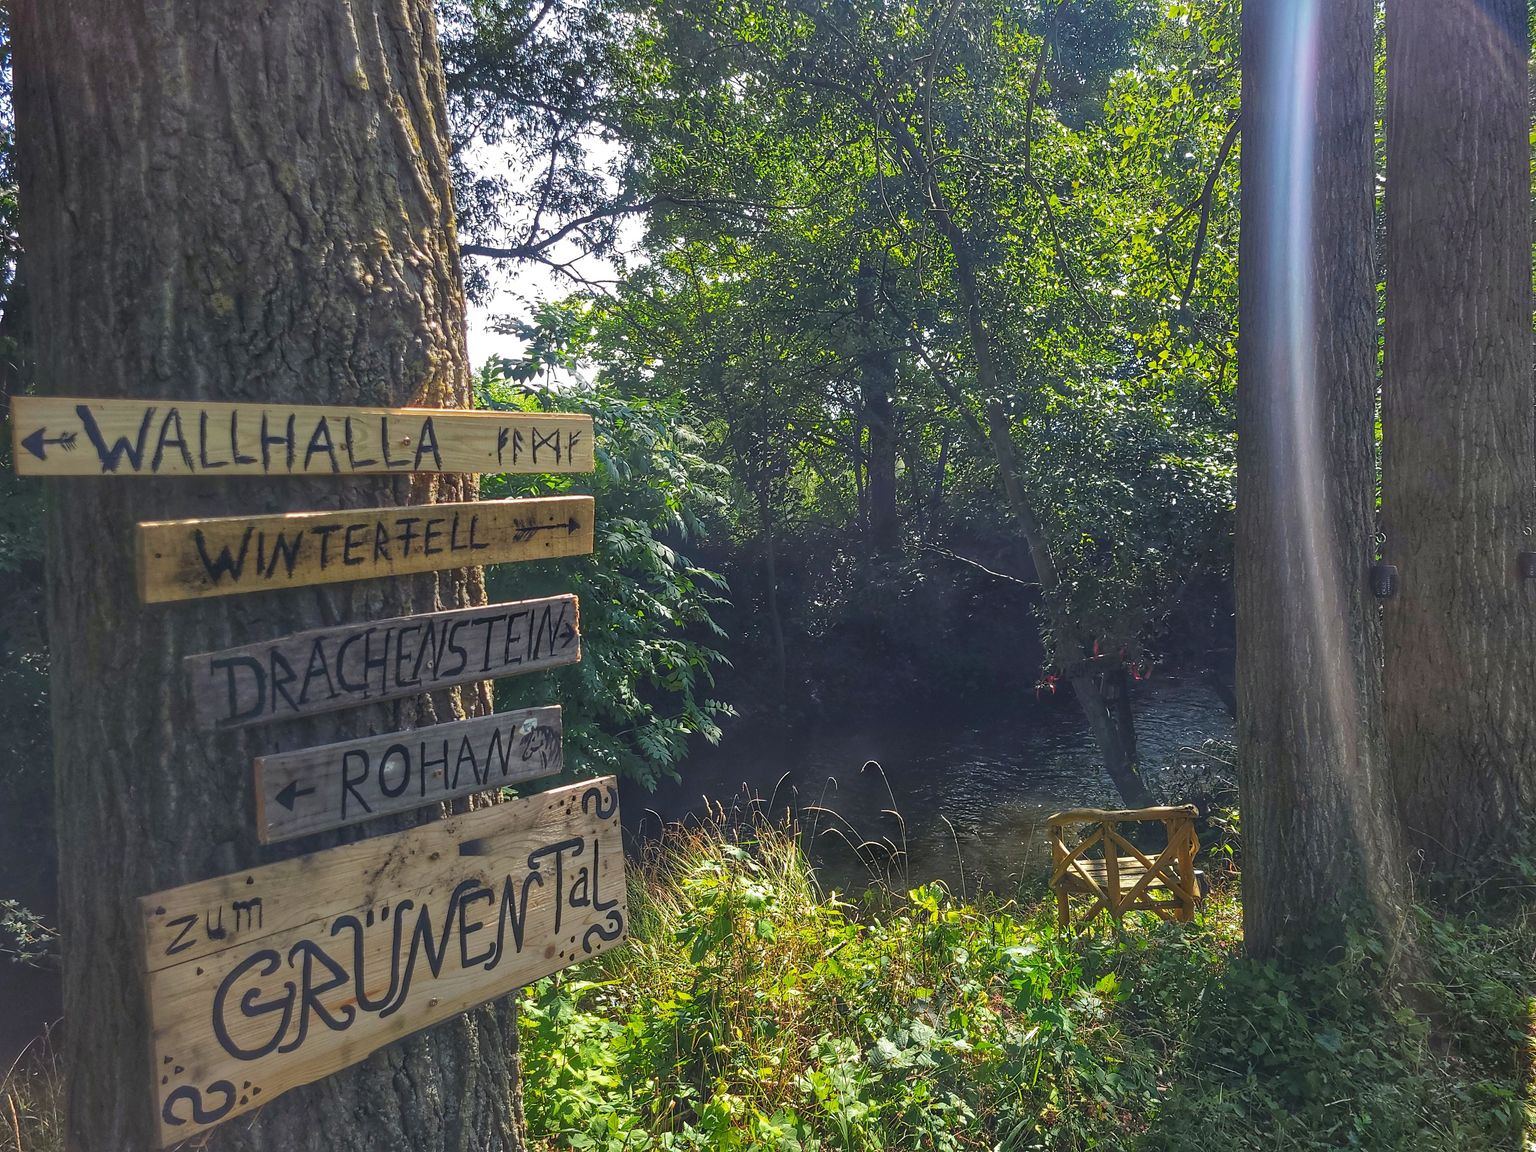 WALLHALLA ᚠᚨᛞᚠ
WINTERFELL
DRACHENSTEIN
ROHAN
zum
GRÜNEN Tal